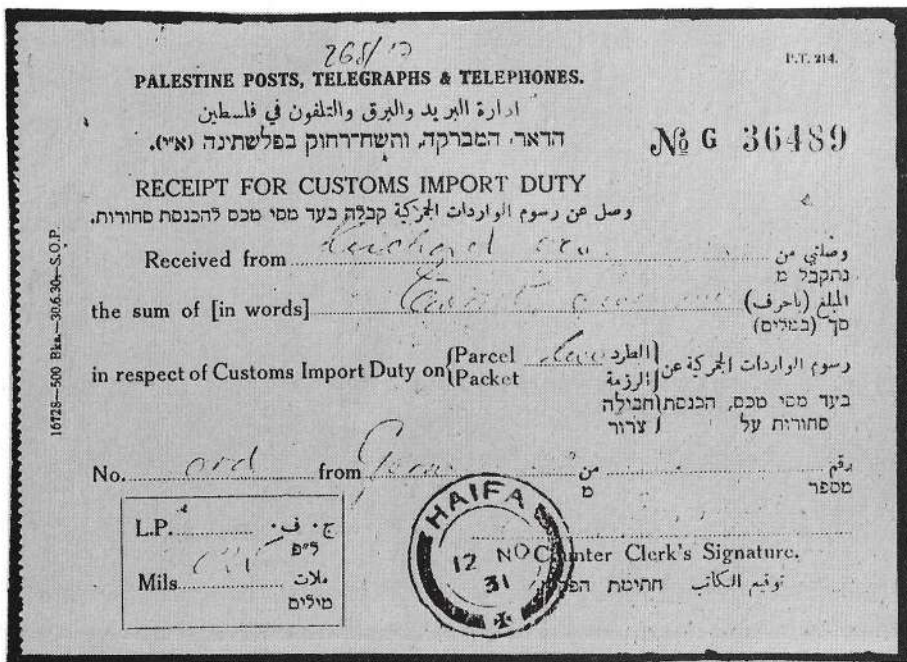 268/
P.T. 214.
PALESTINE POSTS, TELEGRAPHS & TELEPHONES.
ادارة البريد والبرق والتلفون في فلسطين
הדאר, המברקה, והשח־רחוק בפלשתינה (א״י).
№ G 36489
RECEIPT FOR CUSTOMS IMPORT DUTY
وصل عن رسوم الواردات الجمركية קבלה בעד מסי מכס להכנסת סחורות.
Received from وصلني من
נתקבל מ
the sum of [in words] المبلغ (باحرف)
סך (במלים)
in respect of Customs Import Duty on {Parcel الطرد} رسوم الواردات الجمركية عن
{Packet الرزمة
בעד מסי מכס, הכנסת חבילה
סחורות על צרור
No. ord from من رقم
מ מספר
L.P. ج. ف.
ל״פ
Mils ملات
מילים
HAIFA
12 NO
31
Counter Clerk's Signature.
توقيم الكاتب חתימת
16728—500 Bks.—30.6.30—S.O.P.